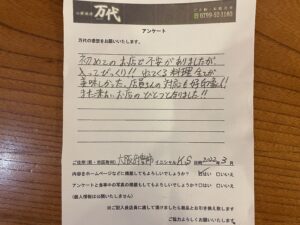 万代
0799-52-1185
アンケート
万代の感想をお聞かせいたします。
初めてのお店で不安がありましたが
入ってびっくり!! 出てくる料理全てが
美味しかった。店員さんの対応も好印象!!
また来たいお店のひとつとなりました!!
ご住所(県・市区町村) 大阪府 イニシャル K.S 2022.3月
内容をホームページなどに掲載してもよろしいでしょうか? はい □いいえ
アンケートと食事中の写真の掲載もしてもよろしいでしょうか? □はい □いいえ
(個人情報は公開いたしません)
ご協力よろしくお願いいたします。